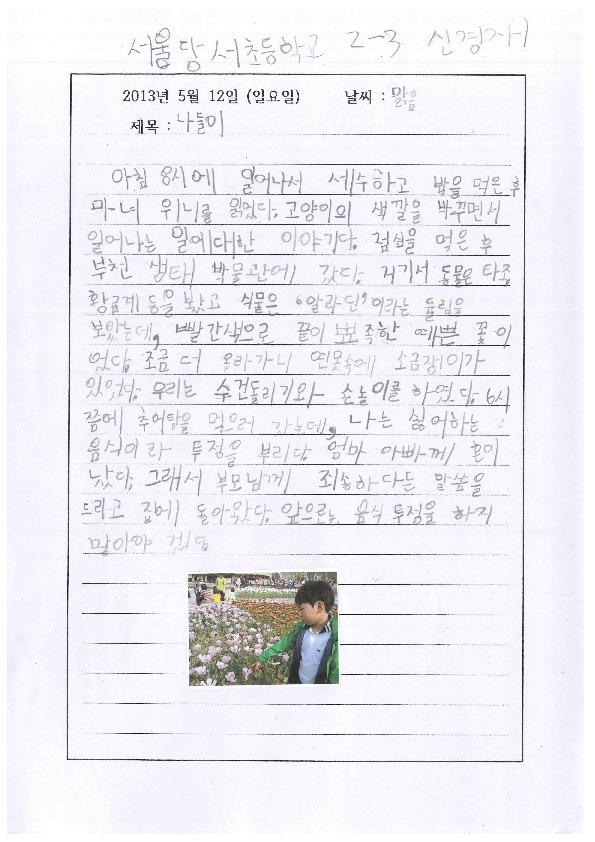 서울당서초등학교 2-3 신경재
2013년 5월 12일 (일요일) 날씨 : 맑음
제목 : 나들이
아침 8시에 일어나서 세수하고 밥을 먹은 후
마녀 위니를 읽었다. 고양이의 색깔을 바꾸면서
일어나는 일에대한 이야기다. 점심을 먹은 후
부천 생태 박물관에 갔다. 거기서 동물은 타조,
황금계 등을 봤고 식물은 "알라딘"이라는 튤립을
보았는데, 빨간색으로 끝이 뾰족한 예쁜 꽃이
었다. 조금 더 올라가니 연못속에 소금쟁이가
있었다. 우리는 수건돌리기와 손놀이를 하였다. 6시
쯤에 추어탕을 먹으러 갔는데, 나는 싫어하는
음식이라 투정을 부리다 엄마 아빠께 혼이
났다. 그래서 부모님께 죄송하다는 말씀을
드리고 집에 돌아왔다. 앞으로는 음식 투정을 하지
말아야 겠다